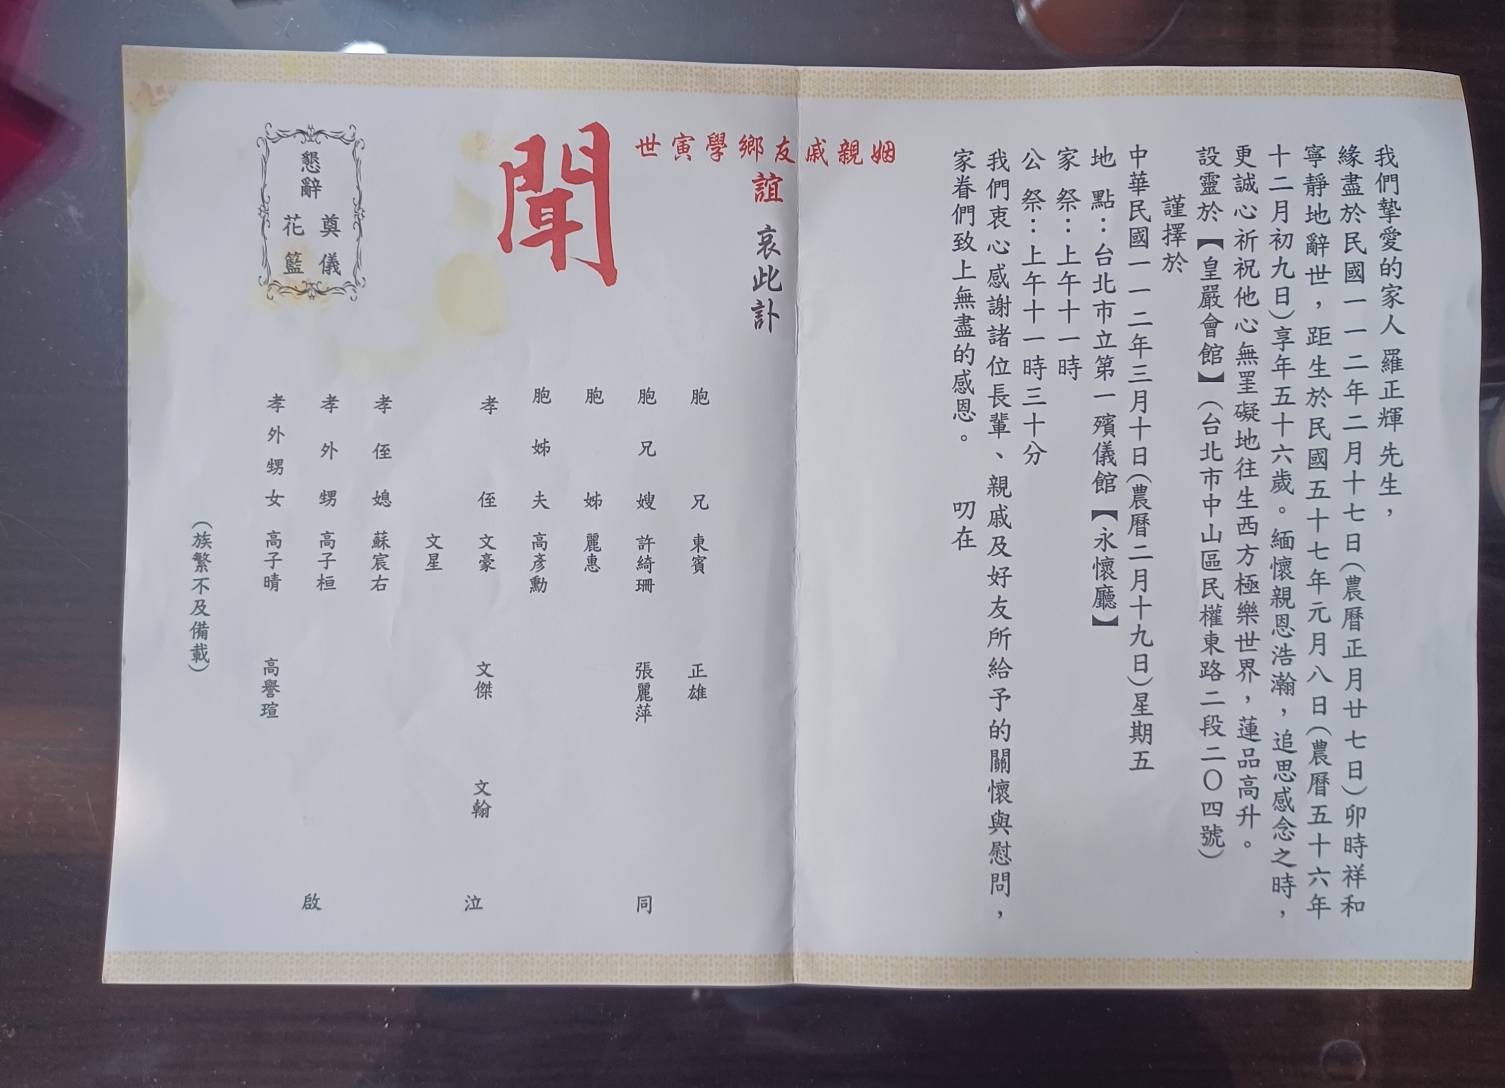 我們摯愛的家人 羅正輝 先生，
緣盡於民國一一二年二月十七日(農曆正月廿七日)卯時祥和
寧靜地辭世，距生於民國五十七年元月八日(農曆五十六年
十二月初九日)享年五十六歲。緬懷親恩浩瀚，追思感念之時，
更誠心祈祝他心無罣礙地往生西方極樂世界，蓮品高升。
設靈於【皇嚴會館】(台北市中山區民權東路二段二〇四號)
謹擇於
中華民國一一二年三月十日(農曆二月十九日)星期五
地 點：台北市立第一殯儀館【永懷廳】
家 祭：上午十一時
公 祭：上午十一時三十分
我們衷心感謝諸位長輩、親戚及好友所給予的關懷與慰問，
家眷們致上無盡的感恩。 叨在
姻親戚友鄉學寅世
誼 哀此訃
聞
胞兄 東賓 正雄
胞兄嫂 許綺珊 張麗萍 同
胞姊 麗惠
胞姊夫 高彥勳
孝侄 文豪 文傑 文翰 泣
文星
孝侄媳 蘇宸右
孝外甥 高子桓 啟
孝外甥女 高子晴 高譽瑄
(族繁不及備載)
懇辭
奠儀
花籃